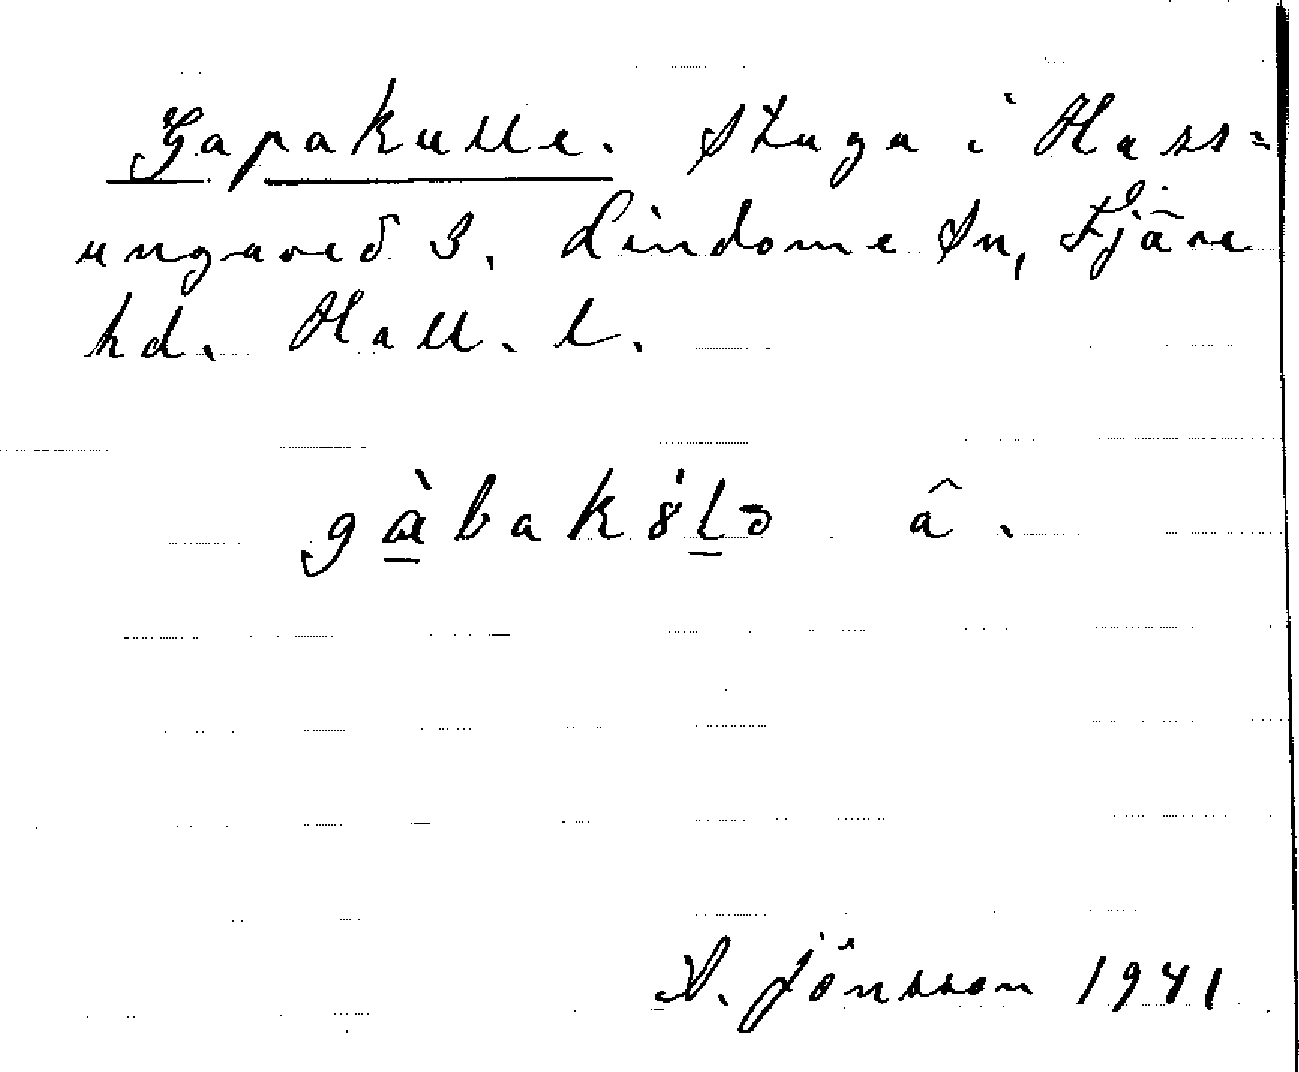 Gapakulle. Stuga i Hass=
ungared 3. Lindome Sn, Fjäre
hd. Hall. l.
gàbak8́lə â.
D. Jönsson 1941